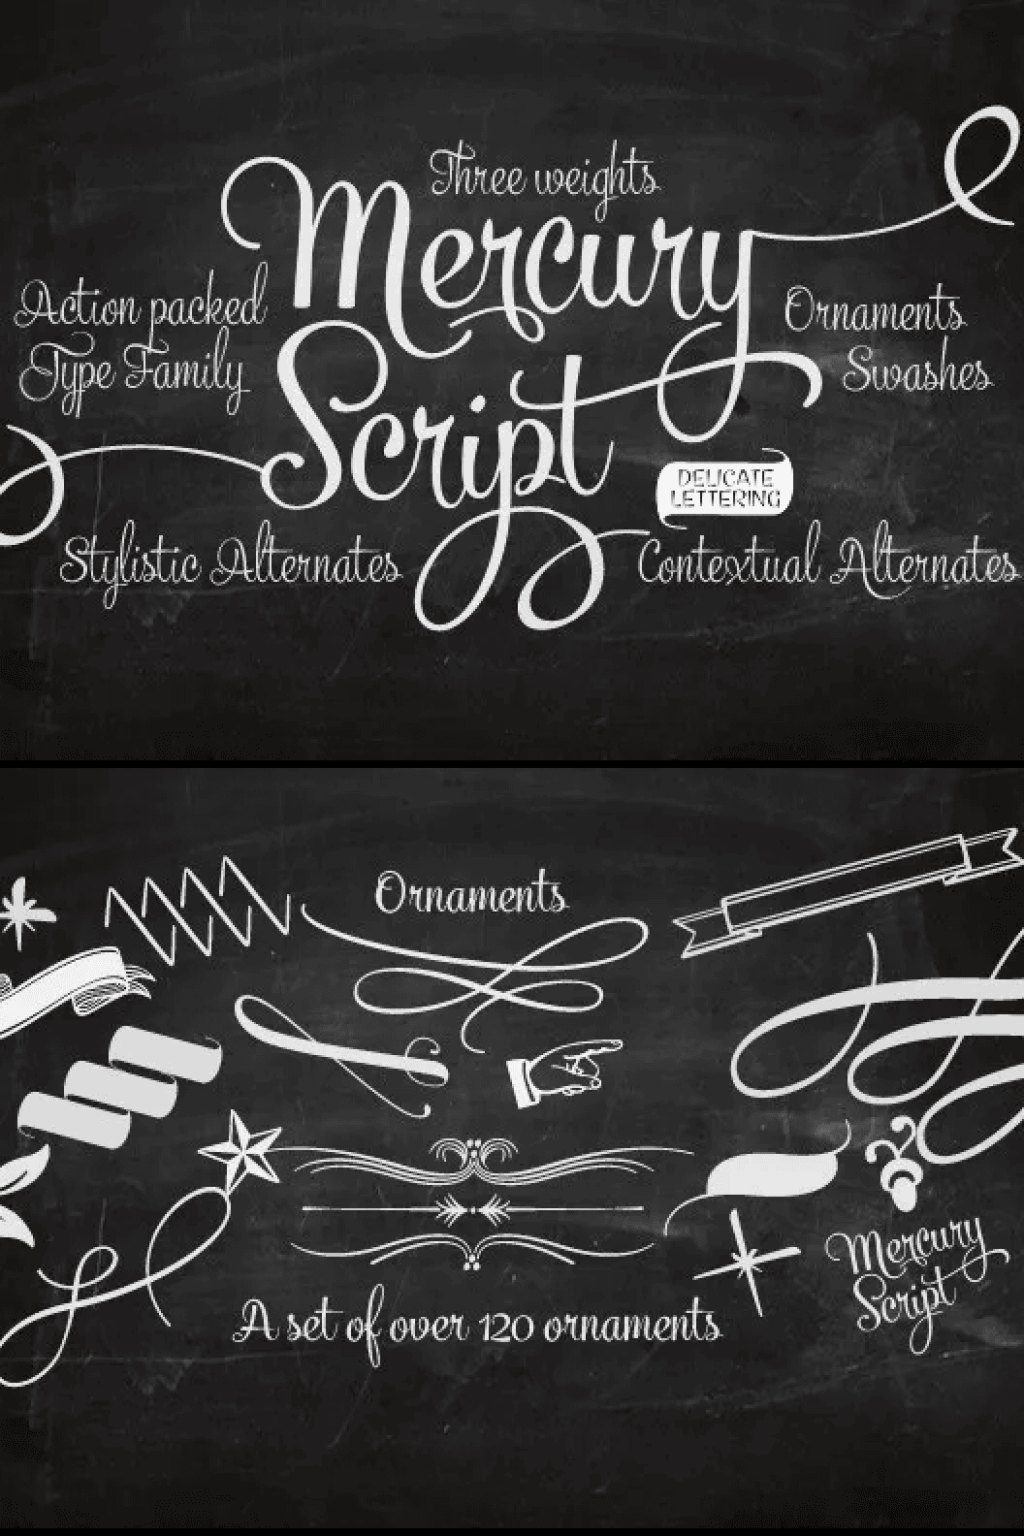 Three weights
Mercury
Script
Action packed
Type Family
Ornaments
Swashes
DELICATE
LETTERING
Stylistic Alternates
Contextual Alternates
Ornaments
A set of over 120 ornaments
Mercury
Script